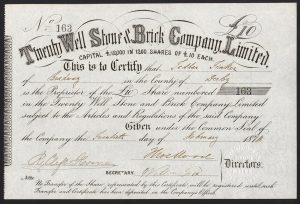 No 163
£10
Twenty Well Stone & Brick Company, Limited.
CAPITAL £12,000 IN 1200 SHARES OF £10 EACH.
This is to Certify that
of in the County of Derby
is the Proprietor of the £10 Share numbered 163
in the Twenty Well Stone and Brick Company Limited
subject to the Articles and Regulations of the said Company
Given under the Common Seal of
the Company the day of February 187
Directors.
SECRETARY.
Note. No Transfer of the Share represented by this Certificate will be registered until such
Transfer and Certificate has been deposited in the Company's Office.